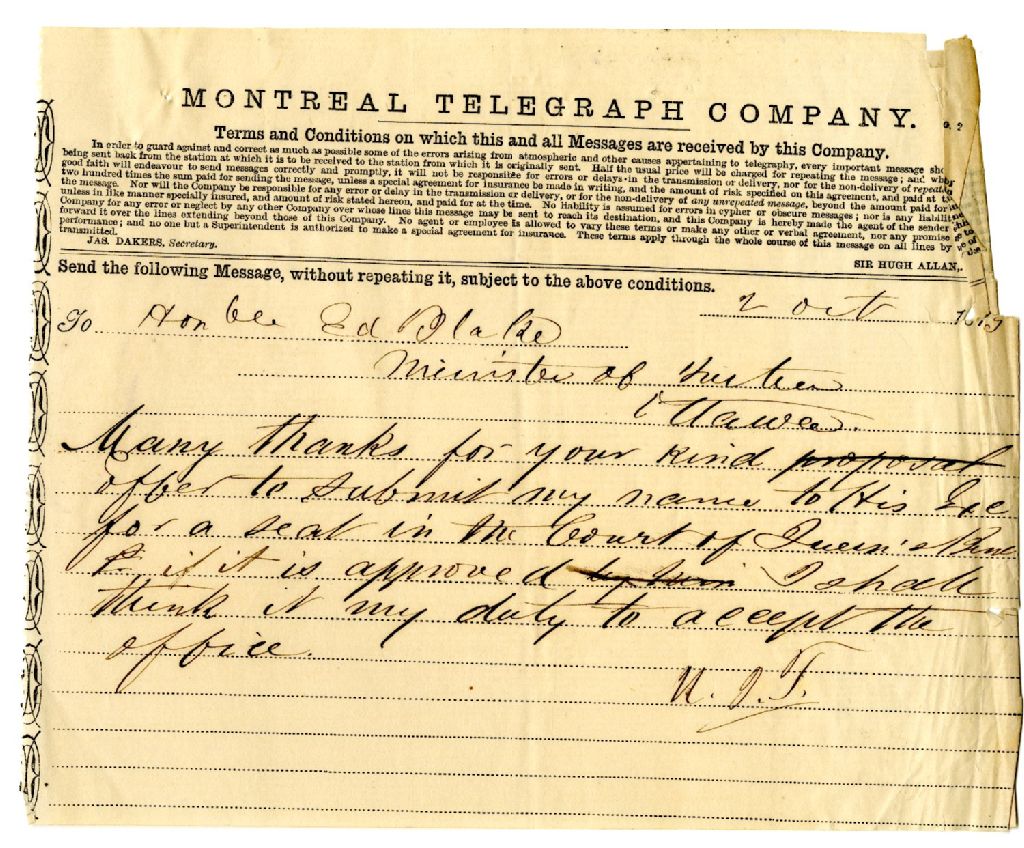 MONTREAL TELEGRAPH COMPANY.
Terms and Conditions on which this and all Messages are received by this Company.
In order to guard against and correct as much as possible some of the errors arising from atmospheric and other causes appertaining to telegraphy, every important message sho
being sent back from the station at which it is to be received to the station from which it is originally sent. Half the usual price will be charged for repeating the message; and
good faith will endeavour to send messages correctly and promptly, it will not be responsible for errors or delays in the transmission or delivery, nor for the non-delivery of repeated
two hundred times the sum paid for sending the message, unless a special agreement for insurance be made in writing, and the amount of risk specified on this agreement, and paid at
the message. Nor will the Company be responsible for any error or delay in the transmission or delivery, or for the non-delivery of any unrepeated message, beyond the amount paid for
unless in like manner specially insured, and amount of risk stated hereon, and paid for at the time. No liability is assumed for errors in cypher or obscure messages; nor is any
Company for any error or neglect by any other Company over whose lines this message may be sent to reach its destination, and this Company is hereby made the agent of the sender
forward it over the lines extending beyond those of this Company. No agent or employee is allowed to vary these terms or make any other or verbal agreement, nor any promise
performance; and no one but a Superintendent is authorized to make a special agreement for insurance. These terms apply through the whole course of this message on all lines by
transmitted.
JAS. DAKERS, Secretary.
SIR HUGH ALLAN,
Send the following Message, without repeating it, subject to the above conditions.
2 Oct 187
To Honble Ed Blake
Minister of Justice
Ottawa.
Many thanks for your kind proposal
offer to submit my name to His Exc
for a seat in the Court of Queen's Benc
& if it is approved by him I shall
think it my duty to accept the
office.